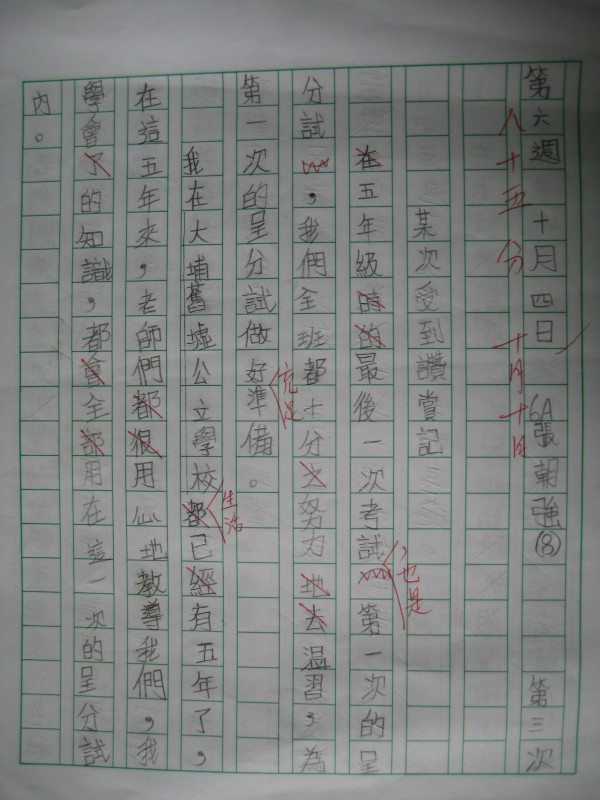 第六週 十月四日 6A張朝強(8) 第三次
八十五分 十月十日
某次受到讚賞記
在五年級時的最後一次考試 第一次的呈
，也是
分試，我們全班都十分之努力地去温習，為
第一次的呈分試做好準備。
充足
我在大埔舊墟公立學校都已經有五年了，
生活
在這五年來，老師們都很用心地教導我們，我
學會了的知識，都會全部用在這一次的呈分試
內。